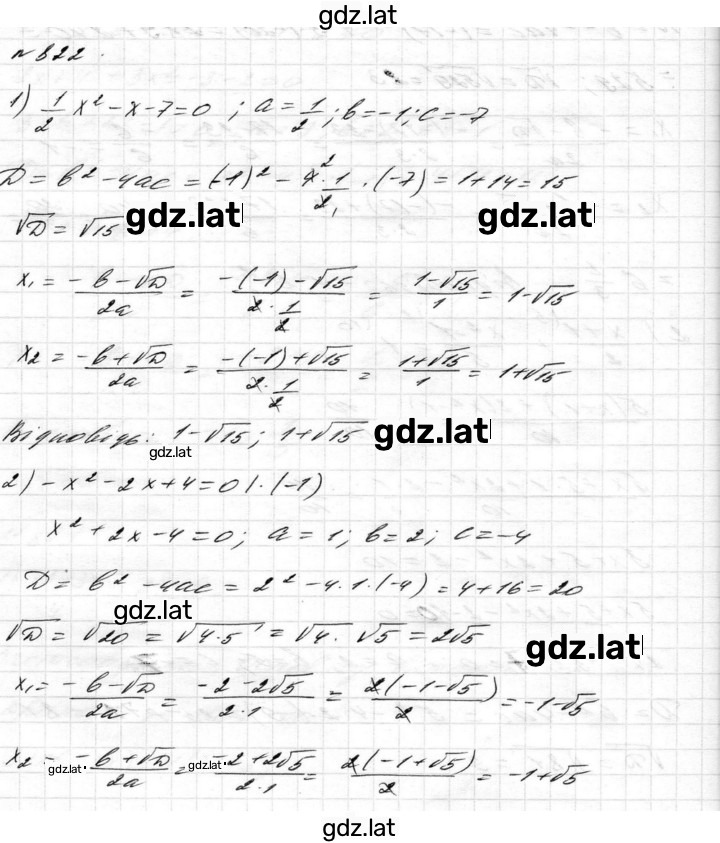 gdz.latl
№ 822.
1) 1/2 x² - x - 7 = 0 ; a = 1/2 ; b = -1 ; c = -7
D = b² - 4ac = (-1)² - 4² · 1/2₁ · (-7) = 1 + 14 = 15
√D = √15 gdz.latl gdz.latl
x₁ = (-b - √D)/2a = (-(-1) - √15)/(2 · 1/2) = (1 - √15)/1 = 1 - √15
x₂ = (-b + √D)/2a = (-(-1) + √15)/(2 · 1/2) = (1 + √15)/1 = 1 + √15
Відповідь: 1 - √15 ; 1 + √15 gdz.latl
gdz.lat
2) - x² - 2x + 4 = 0 | · (-1)
x² + 2x - 4 = 0 ; a = 1 ; b = 2 ; c = -4
D = b² - 4ac = 2² - 4 · 1 · (-4) = 4 + 16 = 20
gdz.lat
√D = √20 = √4·5 = √4 · √5 = 2√5 gdz.latl
x₁ = (-b - √D)/2a = (-2 - 2√5)/(2·1) = 2(-1 - √5)/2 = -1 - √5
x₂ = (-b + √D)/2a = (-2 + 2√5)/(2·1) = 2(-1 + √5)/2 = -1 + √5
gdz.lat gdz.lat
gdz.lat